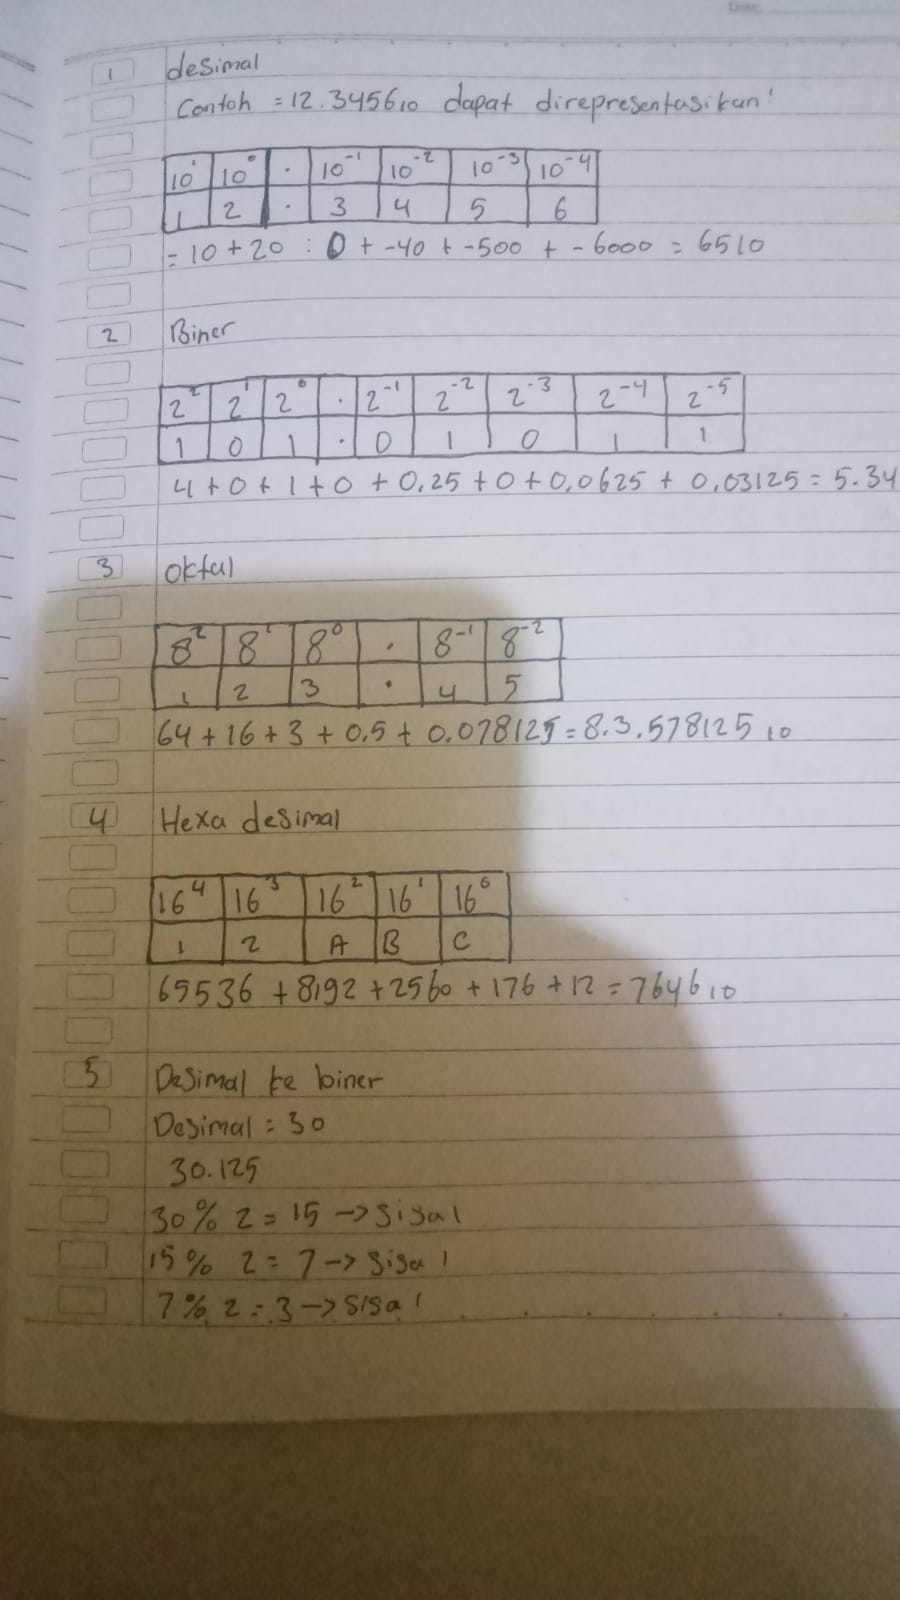 Date:
1 desimal
Contoh = 12.3456₁₀ dapat direpresentasikan:
10¹ 10⁰ . 10⁻¹ 10⁻² 10⁻³ 10⁻⁴
1 2 . 3 4 5 6
= 10 + 20 : 0 + -40 + -500 + -6000 = 6510
2 Biner
2² 2¹ 2⁰ . 2⁻¹ 2⁻² 2⁻³ 2⁻⁴ 2⁻⁵
1 0 1 . 0 1 0 1 1
4 + 0 + 1 + 0 + 0,25 + 0 + 0,0625 + 0,03125 = 5.34
3 oktal
8² 8¹ 8⁰ . 8⁻¹ 8⁻²
1 2 3 . 4 5
64 + 16 + 3 + 0.5 + 0.078125 = 8.3.578125₁₀
4 Hexa desimal
16⁴ 16³ 16² 16¹ 16⁰
1 2 A B C
65536 + 8192 + 2560 + 176 + 12 = 7646₁₀
5 Desimal ke biner
Desimal = 30
30.125
30 % 2 = 15 -> Sisa 1
15 % 2 = 7 -> Sisa 1
7 % 2 = 3 -> SISa 1